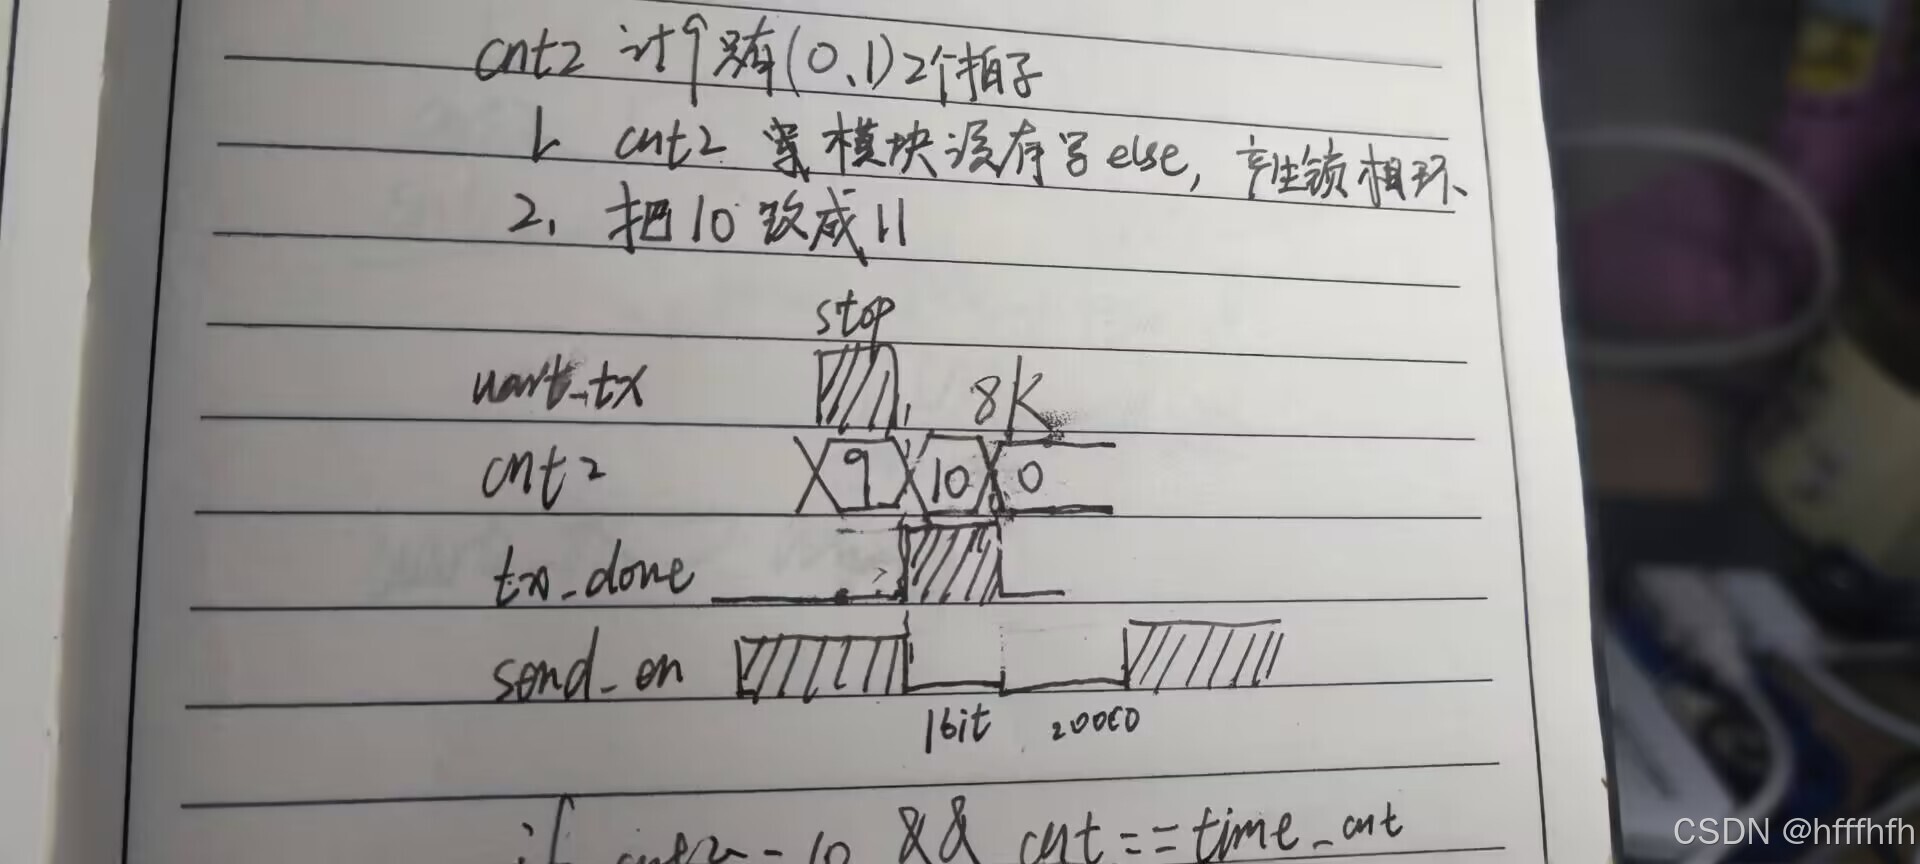 cnt2 计个只有(0、1)2个拍子
1. cnt2 模块没有写else, 产生锁相环、
2. 把10改成11
stop
uart_tx 8K
cnt2 9 10 0
tx_done
send_en
1bit 20000
if cnt2 == 10 && cnt == time_cnt
CSDN @hfffhfh